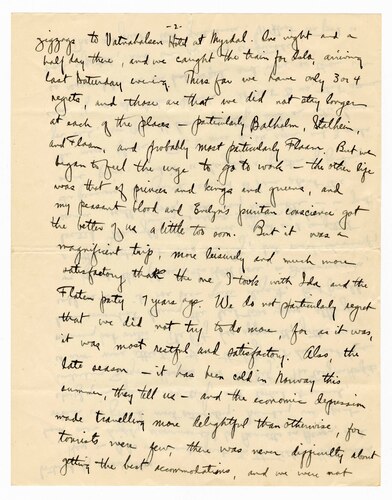 -2-
zigzags to Vatnahalsen Hotel at Myrdal. One night and a
half day there, and we caught the train for Oslo, arriving
last Saturday evening. Thus far we have only 3 or 4
regrets, and those are that we did not stay longer
at each of the places - particularly Balholm, Stalheim,
and Flaam, and probably most particularly Flaam. But we
began to feel the urge to go to work - the other life
was that of princes and kings and queens, and
my peasant blood and Evelyn's puritan conscience got
the better of us a little too soon. But it was a
magnificent trip, more leisurely and much more
satisfactory than the one I took with Ida and the
Flaten party 7 years ago. We do not particularly regret
that we did not try to do more, for as it was,
it was most restful and satisfactory. Also, the
late season - it has been cold in Norway this
summer, they tell us - and the economic depression
made travelling more delightful than otherwise, for
tourists were few, there was never difficulty about
getting the best accommodations, and we were not